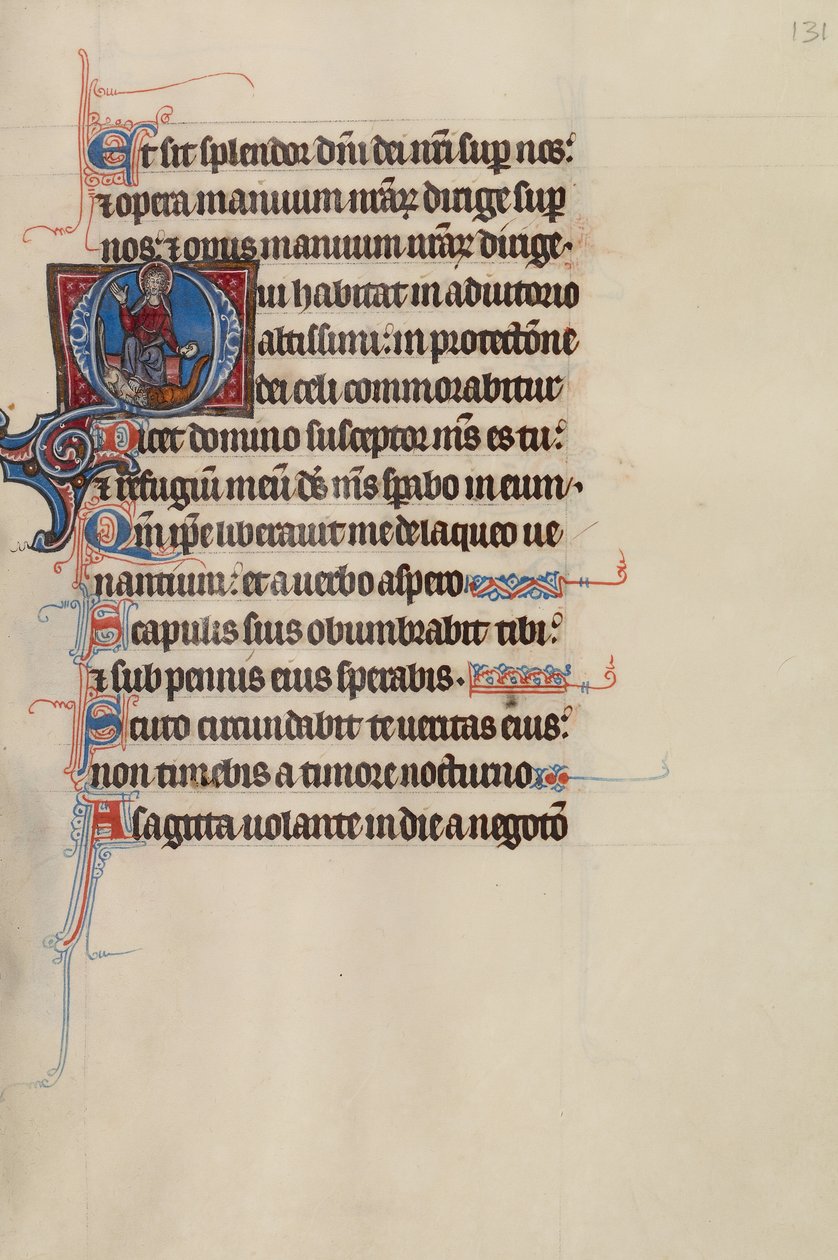 131
Et sit splendor dñi dei nr̃i sup nos:
⁊ opera manuum nr̃aꝝ dirige sup
nos: ⁊ opus manuum nr̃aꝝ dirige.
Qui habitat in adiutorio
altissimi: in protectõne
dei celi commorabitur
Dicet domino susceptor m̃s es tu:
⁊ refugiũ meũ ds̃ m̃s sꝑabo in eum.
Qm̃ ip̃e liberauit me de laqueo ue
nantium: et a uerbo aspero
Scapulis suis obumbrabit tibi:
⁊ sub pennis eius sperabis.
Scuto circundabit te ueritas eius:
non timebis a timore nocturno
A sagitta uolante in die a negotõ